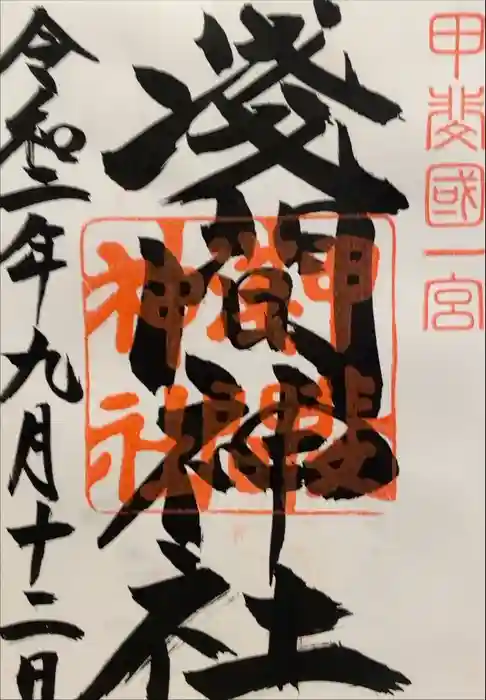 甲斐國一宮
淺間神社
甲斐
淺間
神社
令和二年九月十二日